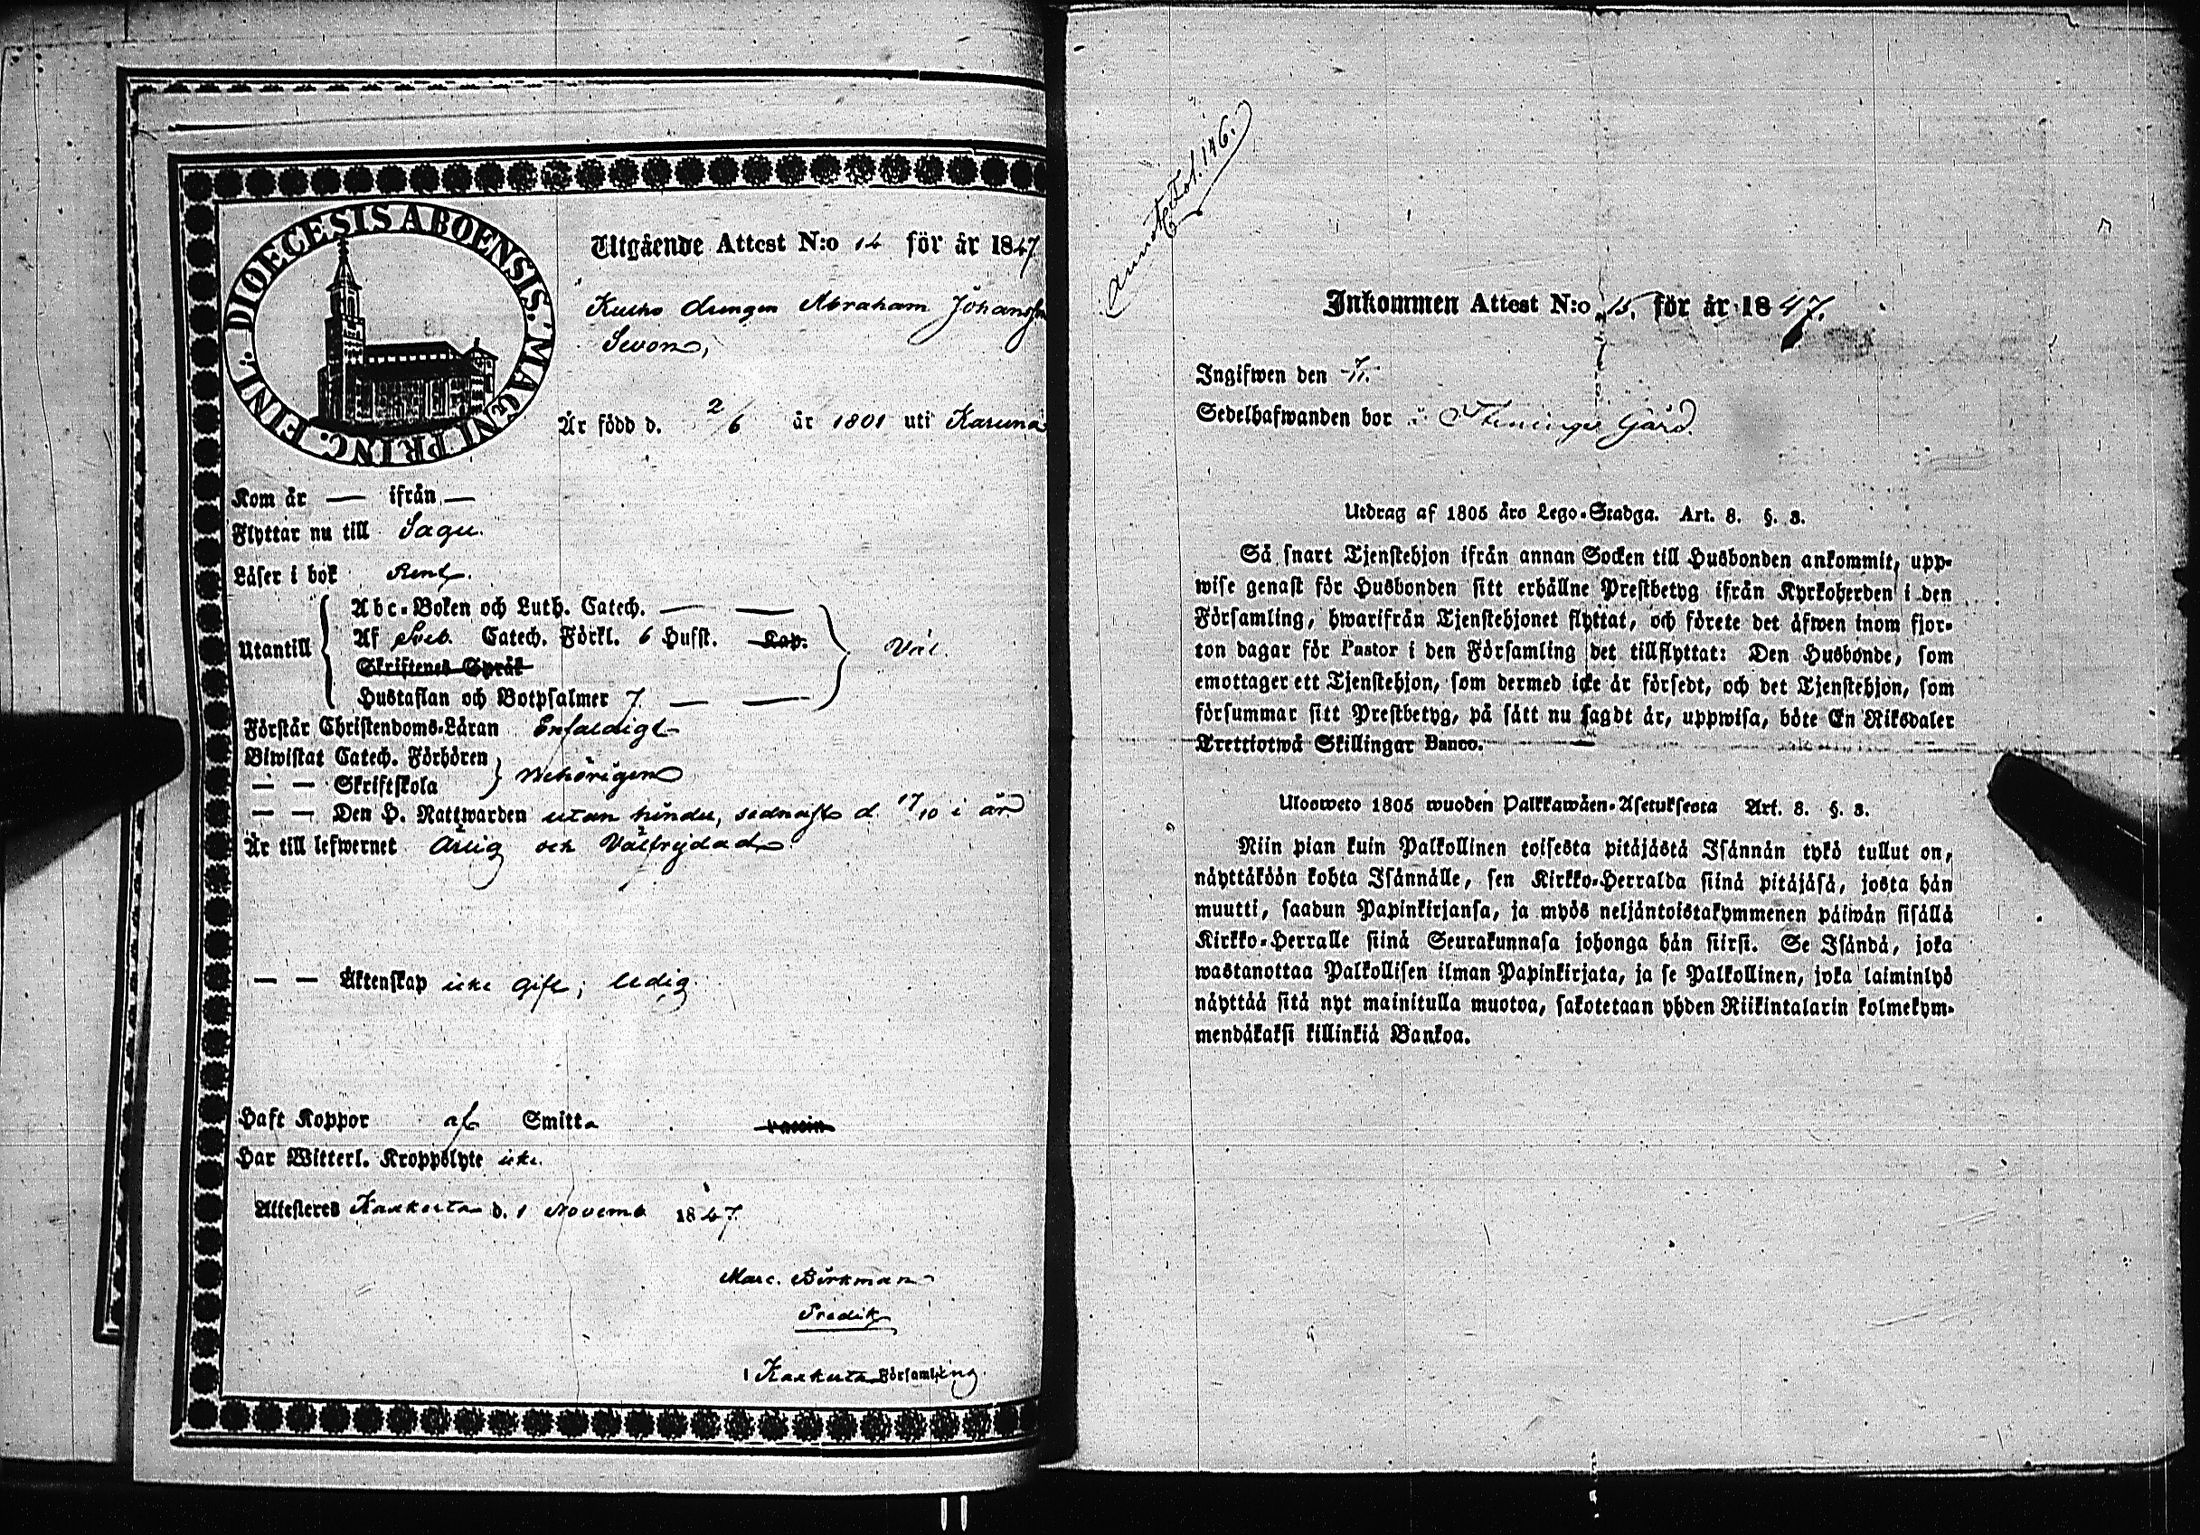 DIOECESIS ABOENSIS. MAGNI PRINC. FINL.
Utgående Attest N:o 14 för år 1847
Kusks drengen Abraham Johansson
Sevon,
Är född d. 2/6 år 1801 uti Karuna
Kom år — ifrån —
Flyttar nu till Sagu.
Läser i bok Rent.
Utantill
Abc-Boken och Luth. Catech. — —
Af Sveb. Catech. Förkl. 6 Hufst. Kap.
Skriftenes Språk
Hustaflan och Botpsalmer 7. — —
Väl.
Förstår Christendoms-Läran Enfaldigt
Biwistat Catech. Förhören
— — Skriftskola
Behörigen
— — Den H. Nattwarden utan hinder, sednast d. 17/10 i år
Är till lefwernet Ärlig och Välfrejdad.
— — Äktenskap icke gift; ledig.
Haft Koppor af Smitta vaccin
Har Witterl. Kroppslyte icke.
Attesteres Kakskerta d. 1 Novemb 1847.
Marc. Birkman
Predik
i Kakskerta Församling
Fol. 146.
Inkommen Attest N:o 15. för år 1847.
Ingifwen den
Sedelhafwanden bor å Gård.
Utdrag af 1805 års Lego-Stadga. Art. 8. §. 3.
Så snart Tjenstehjon ifrån annan Socken till Husbonden ankommit, upp-
wise genast för Husbonden sitt erhållne Prestbetyg ifrån Kyrkoherden i den
Församling, hwarifrån Tjenstehjonet flyttat, och förete det äfwen inom fjor-
ton dagar för Pastor i den Församling det tillflyttat: Den Husbonde, som
emottager ett Tjenstehjon, som dermed icke är försedt, och det Tjenstehjon, som
försummar sitt Prestbetyg, på sätt nu sagdt är, uppwisa, böte En Riksdaler
Trettiotwå Skillingar Banco.
Ulosweto 1805 wuoden Palkkawäen-Asetuksesta Art. 8. §. 3.
Niin pian kuin Palkollinen toisesta pitäjästä Isännän tykö tullut on,
näyttäköön kohta Isännälle, sen Kirkko-Herralda siinä pitäjäsä, josta hän
muutti, saadun Papinkirjansa, ja myös neljäntoistakymmenen päiwän sisällä
Kirkko-Herralle siinä Seurakunnasa johonga hän siirsi. Se Isändä, joka
wastanottaa Palkollisen ilman Papinkirjata, ja se Palkollinen, joka laiminlyö
näyttää sitä nyt mainitulla muotoa, sakotetaan yhden Riikintalarin kolmekym-
mendäkaksi killinkiä Bankoa.